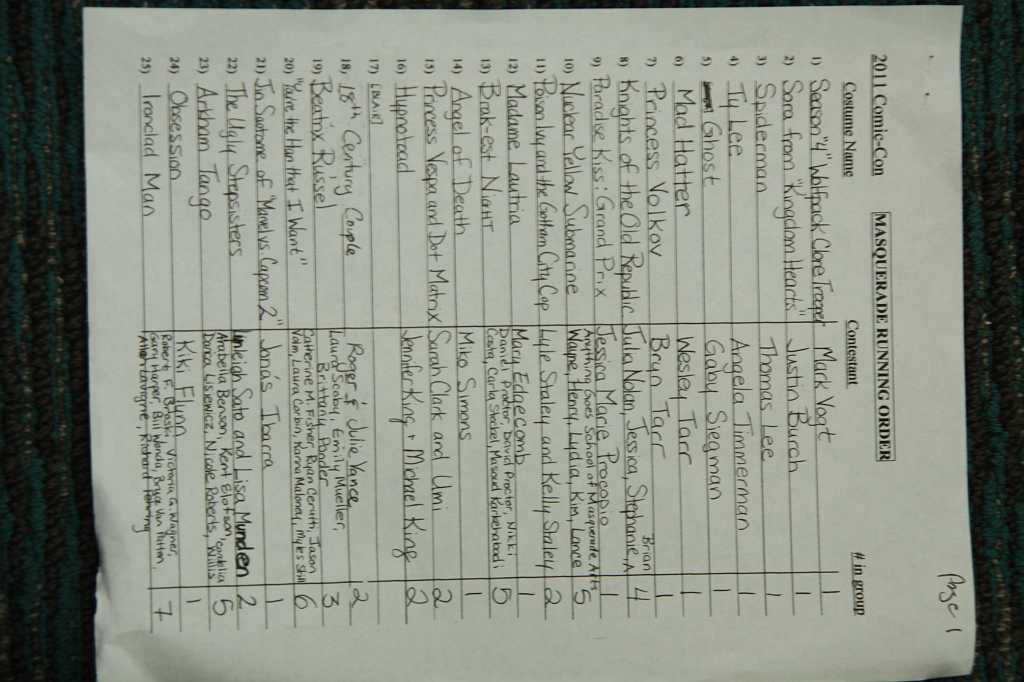 Page 1
2011 Comic-Con MASQUERADE RUNNING ORDER
Costume Name Contestant # in group
1) Season "4" Wolfpack Clone Trooper Mark Vogt 1
2) Sora from "Kingdom Hearts" Justin Burch 1
3) Spiderman Thomas Lee 1
4) Ty Lee Angela Timmerman 1
5) Ghost Gaby Siegman 1
6) Mad Hatter Wesley Tarr 1
7) Princess Volkov Bryn Tarr 1
8) Knights of the Old Republic Julia Nolan, Jessica, Stephanie, A Brian 4
9) Paradise Kiss: Grand Prix Jessica Marie Procopio 1
10) Nuclear Yellow Submarine Anything Goes School of Masquerade Arts
Wayne, Henry, Lydia, Kim, Lance 5
11) Poison Ivy and the Gotham City Cop Lyle Staley and Kelly Staley 2
12) Madame Lautria Mary Edgecomb 1
13) Brak-est NighT Daniel Proctor, David Proctor, Nikki
Costa, Carla Steckel, Masoud Karkehabadi 5
14) Angel of Death Miko Simons 1
15) Princess Vespa and Dot Matrix Sarah Clark and Umi 2
16) Hypnotoad Jennifer King + Michael King 2
17)
18) 18th Century Couple Roger & Julie Vance 2
19) Beatrix Russel Laura Scoby, Emily Mueller,
Brittany Ponder 3
20) "You're the Hun that I Want" Catherine M. Fisher, Ryan Ceruth, Jason
Valm, Laura Corbin, Karina Maloney, Myles 6
21) Jin Saotome of "Marvel vs. Capcom 2" Jonás Ibarra 1
22) The Ugly Stepsisters Linleigh Sato and Lisa Munden 2
23) Arkham Tango Arabella Benson, Kent Elofson, Cordelia
Willis, Danica Lisiewicz, Nicole Roberts, 5
24) Obsession Kiki Flynn 1
25) Ironclad Man Robert F. Brassk, Victoria G. Wagner,
Gary Harper, Bill Wanda, Bryce Van Patten,
Richard 7